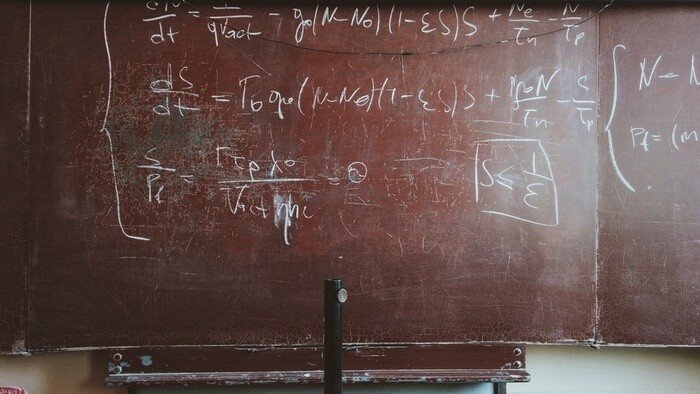 dN/dt = I/qVact - g0(N-N0)(1-εS)S + Ne/τn - N/τp
dS/dt = Γ0g0(N-N0)(1-εS)S + N/τn - S/τp
S/Pf = Γτpλ0/Vact ηhc = 
S ≤ 1/ε
N - N
Pf = (m